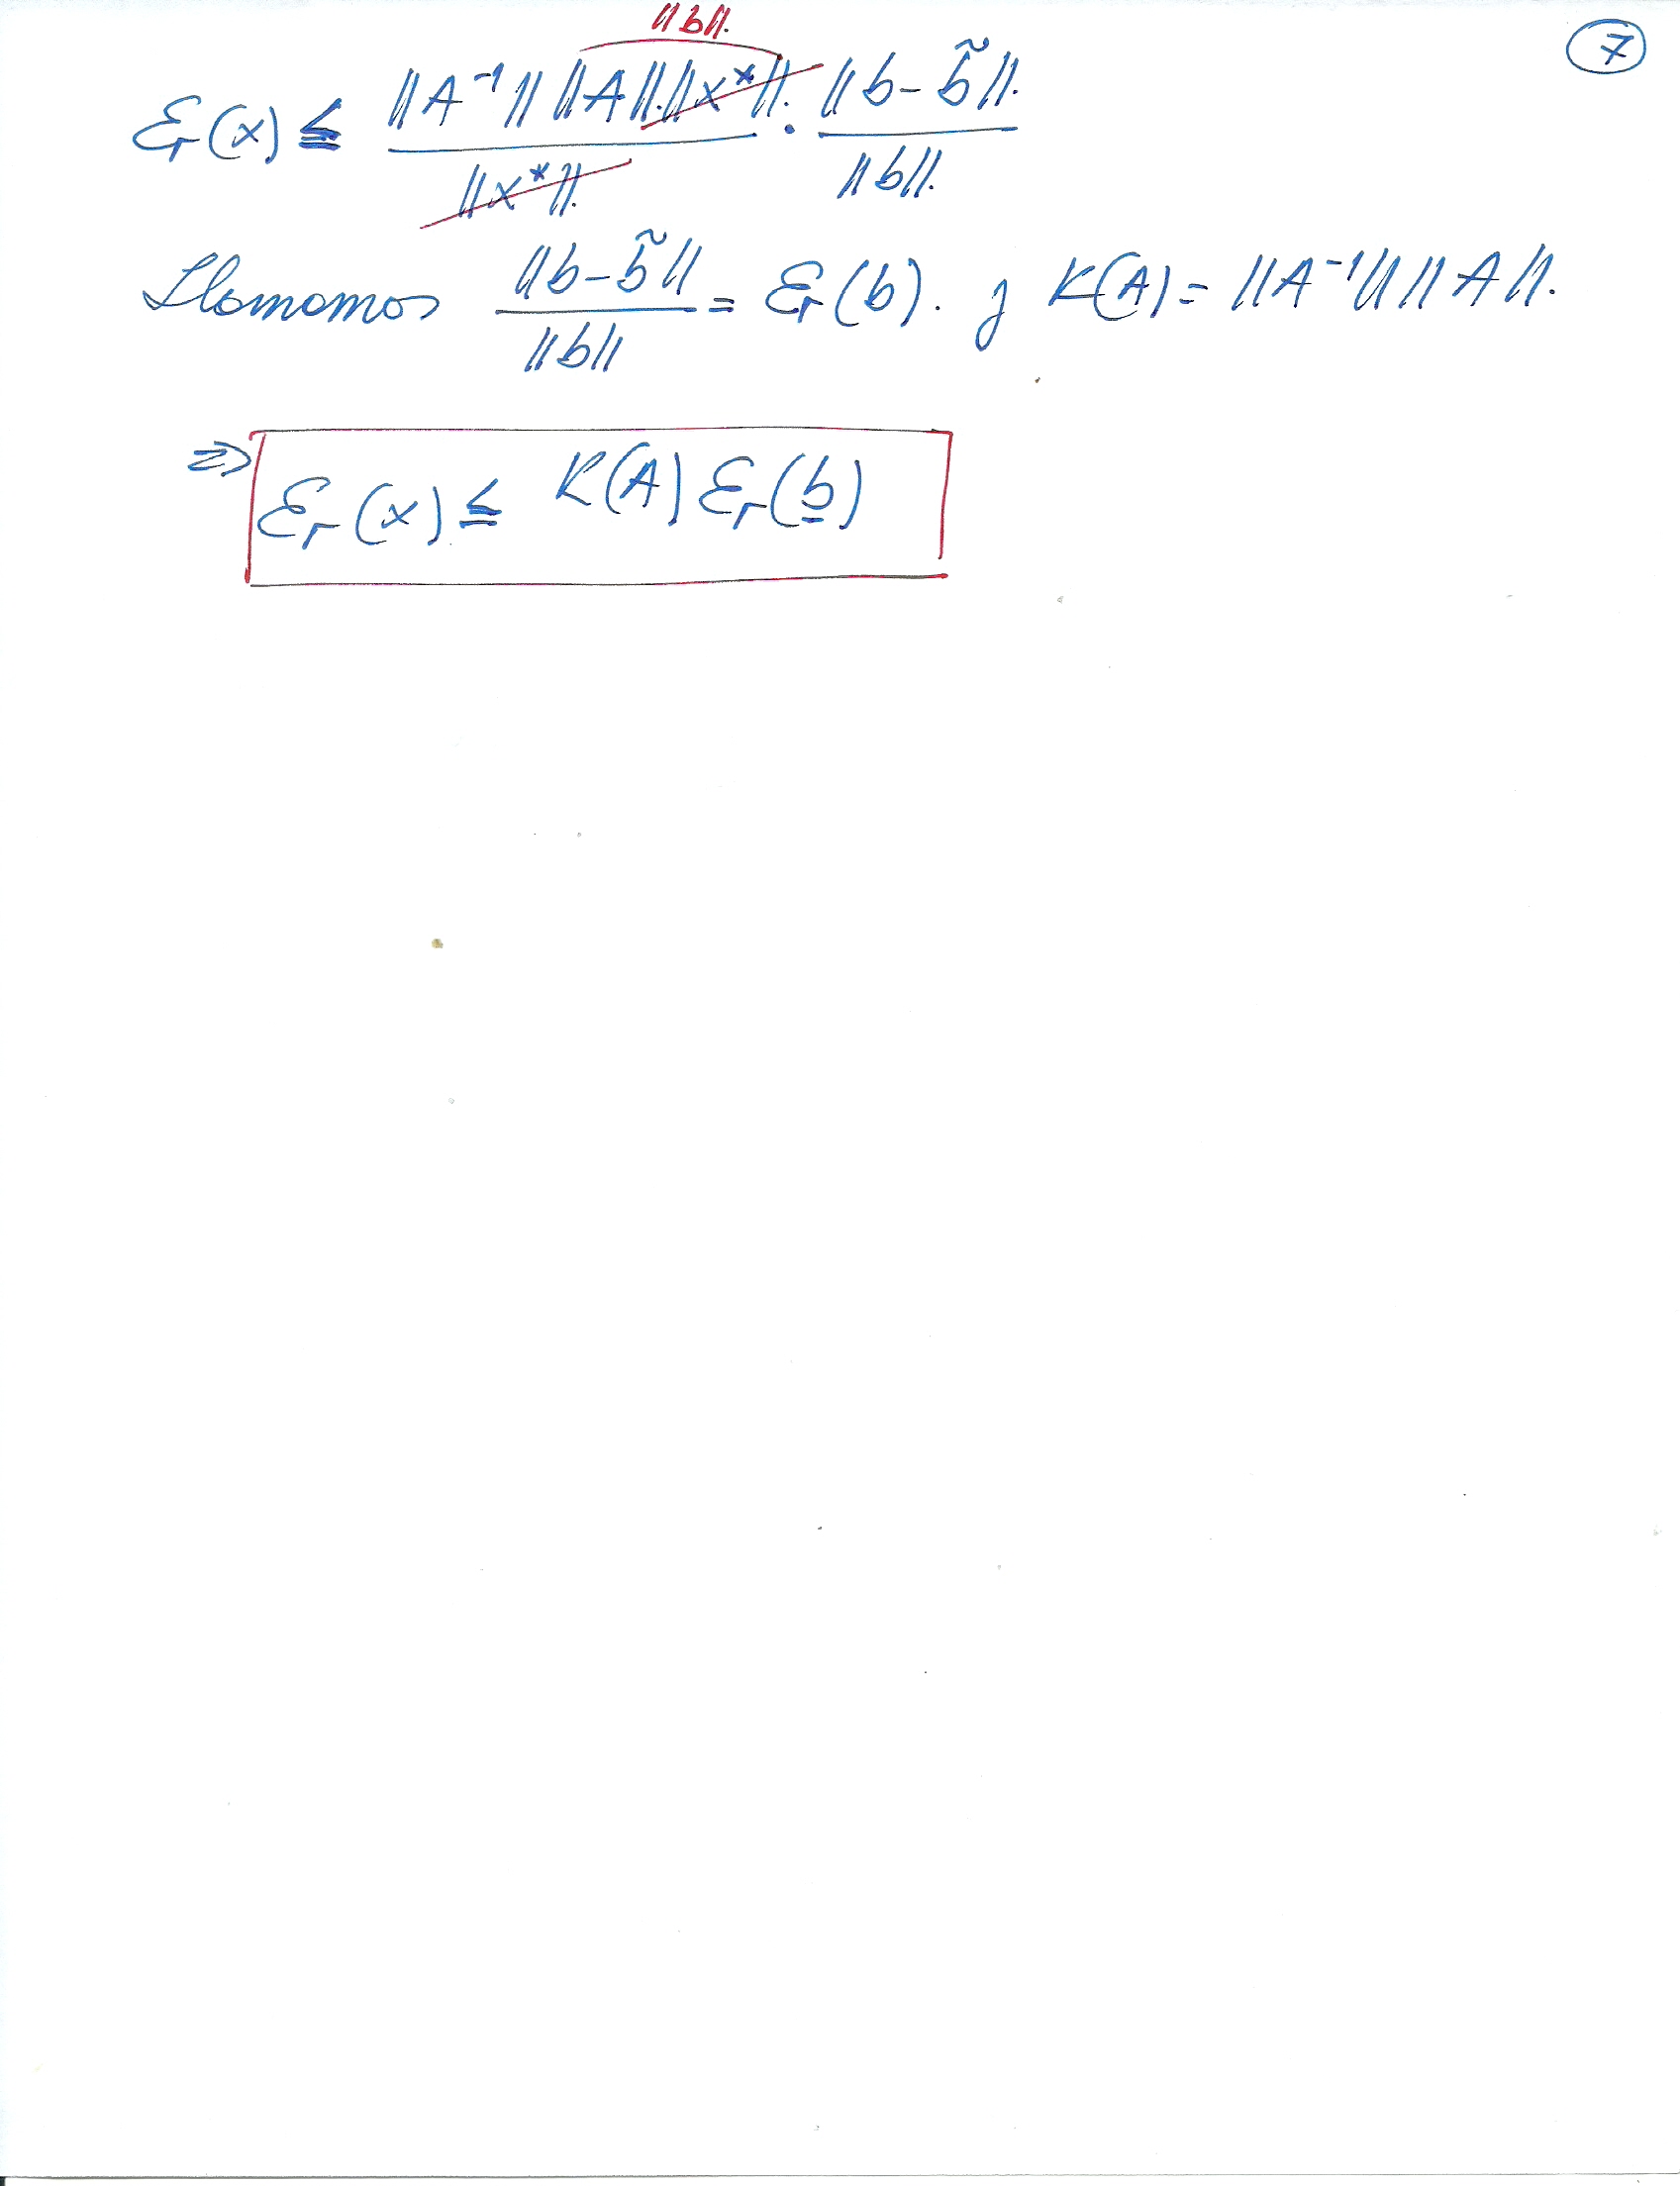 7
‖b‖.
Er(x) ≤ ‖A⁻¹‖ ‖A‖.‖x*‖. / ‖x*‖. · ‖b-b̃‖. / ‖b‖.
Llamamos ‖b-b̃‖ / ‖b‖ = Er(b). y K(A) = ‖A⁻¹‖ ‖A‖.
⇒ Er(x) ≤ K(A) Er(b)